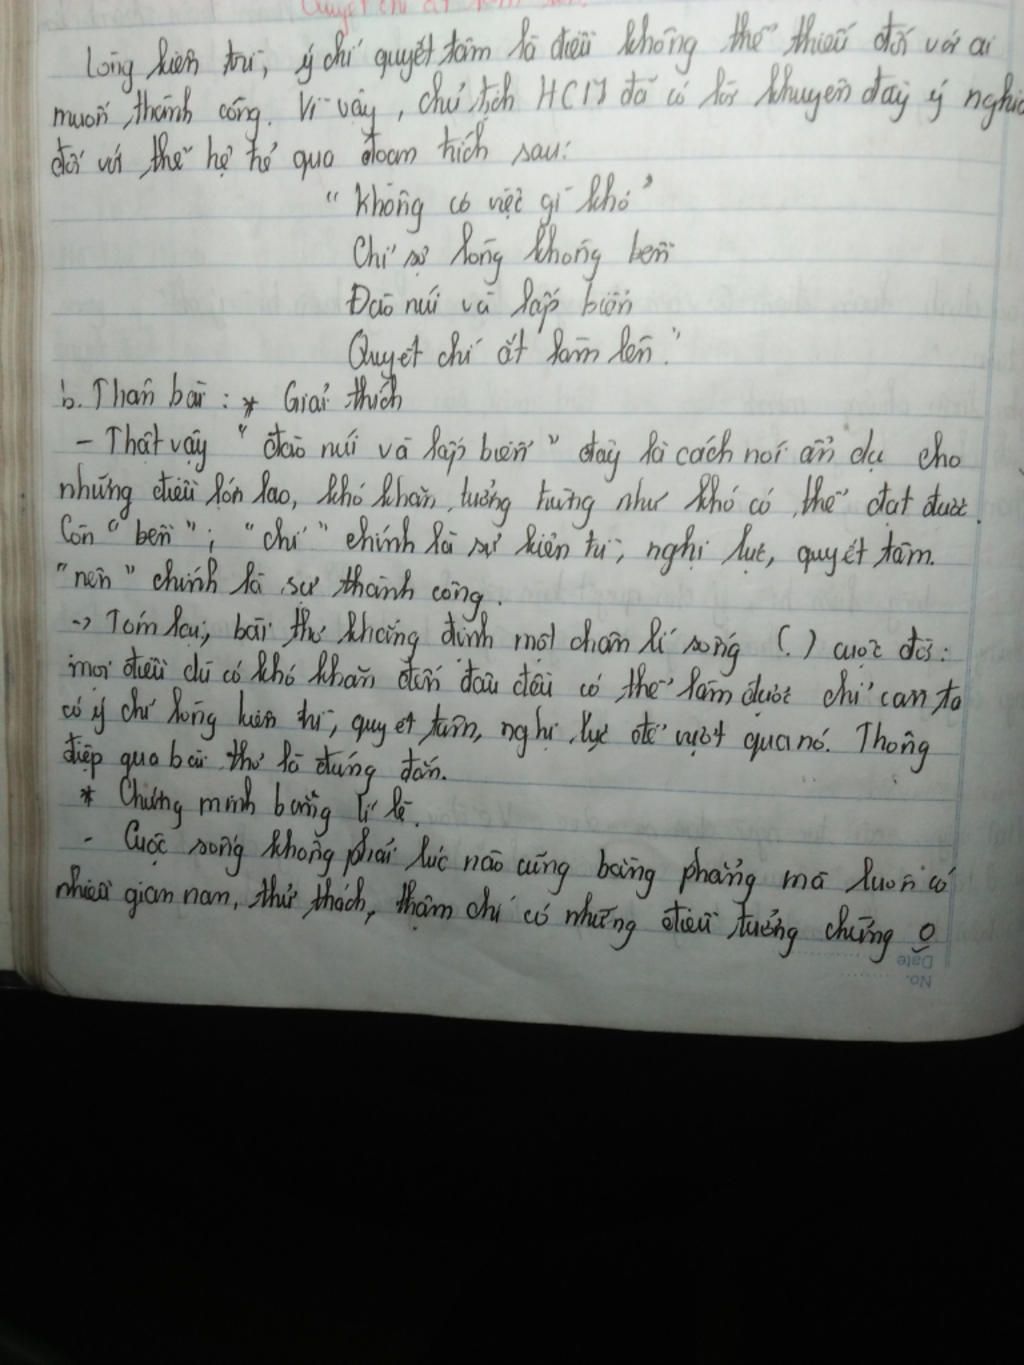 Quyết chí ắt làm nên.
Lòng kiên trì, ý chí quyết tâm là điều không thể thiếu đối với ai
muốn thành công. Vì vậy, chủ tịch HCM đã có lời khuyên đầy ý nghĩa
đối với thế hệ trẻ qua đoạn trích sau:
"Không có việc gì khó"
Chỉ sợ lòng không bền
Đào núi và lấp biển
Quyết chí ắt làm lên."
b. Thân bài: * Giải thích
- Thật vậy "đào núi và lấp biển" đây là cách nói ẩn dụ cho
những điều lớn lao, khó khăn, tưởng từng như khó có thể đạt được.
Còn "bền"; "chí" chính là sự kiên trì, nghị lực, quyết tâm.
"nên" chính là sự thành công.
-> Tóm lại, bài thơ khẳng định một chân lí sống (.) cuộc đời:
mọi điều dù có khó khăn đến đâu đều có thể làm được chỉ cần ta
có ý chí lòng kiên trì, quyết tâm, nghị lực để vượt qua nó. Thông
điệp qua bài thơ là đúng đắn.
* Chứng minh bằng lí lẽ.
- Cuộc sống không phải lúc nào cũng bằng phẳng mà luôn có
nhiều gian nan, thử thách, thậm chí có những điều tưởng chừng o
Date
No.